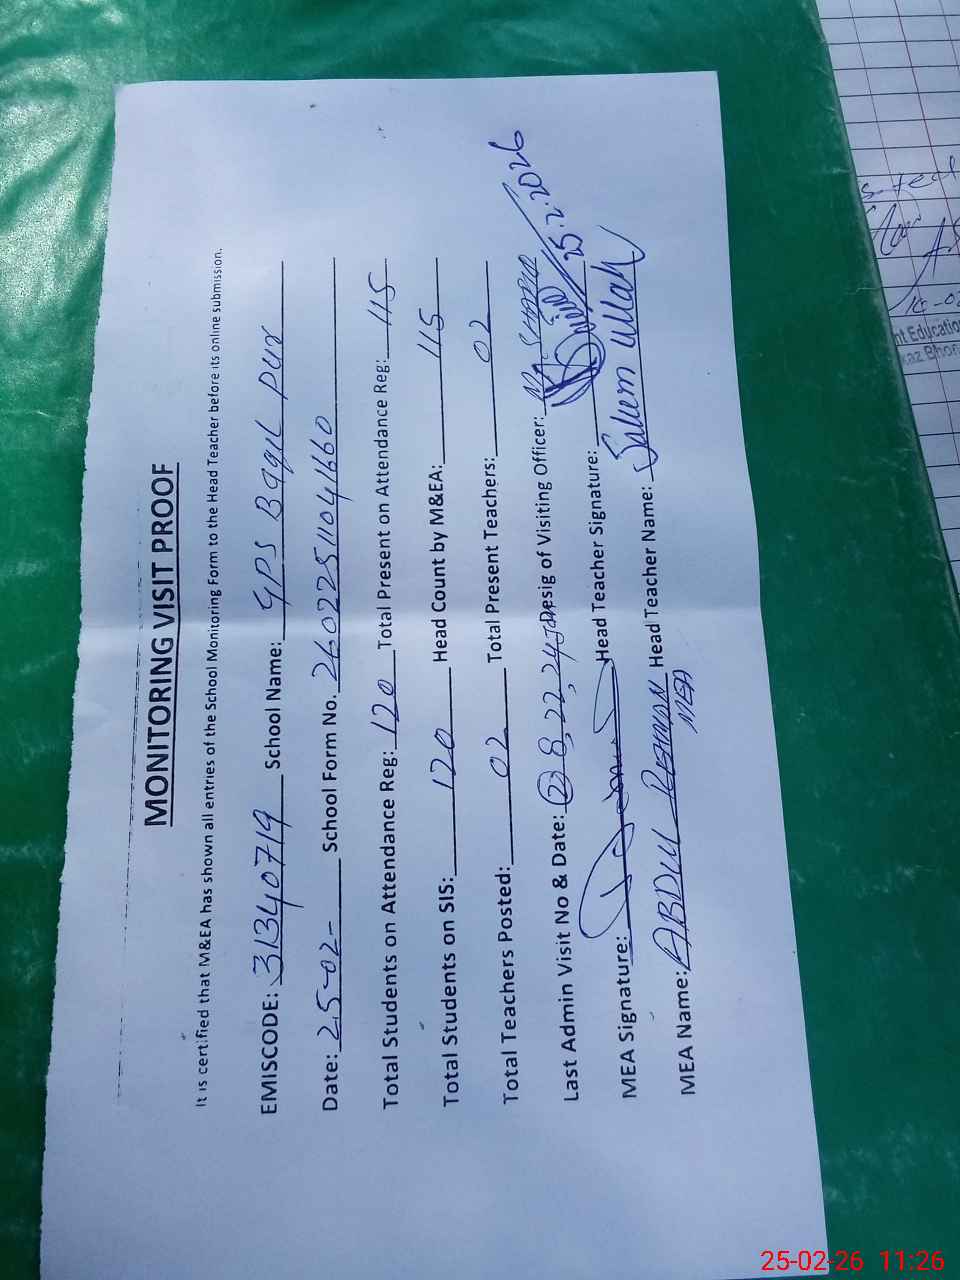 MONITORING VISIT PROOF
It is certified that M&EA has shown all entries of the School Monitoring Form to the Head Teacher before its online submission.
EMISCODE: 31340719 School Name: GPS Baqil pur
Date: 25-02- School Form No. 26022511041660
Total Students on Attendance Reg: 120 Total Present on Attendance Reg: 115
Total Students on SIS: 120 Head Count by M&EA: 115
Total Teachers Posted: 02 Total Present Teachers: 02
Last Admin Visit No & Date: (2) 8, 22, 24 Jan Desig of Visiting Officer:
MEA Signature: Head Teacher Signature: 25.2.2026
MEA Name: ABDUL REHMAN Head Teacher Name: Saleem Ullah
MEA
nt Education
25-02-26 11:26